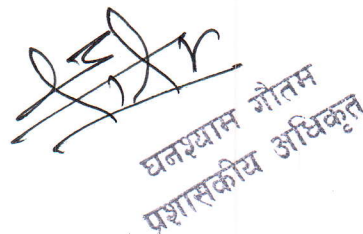 घनश्याम गौतम
प्रशासकीय अधिकृत